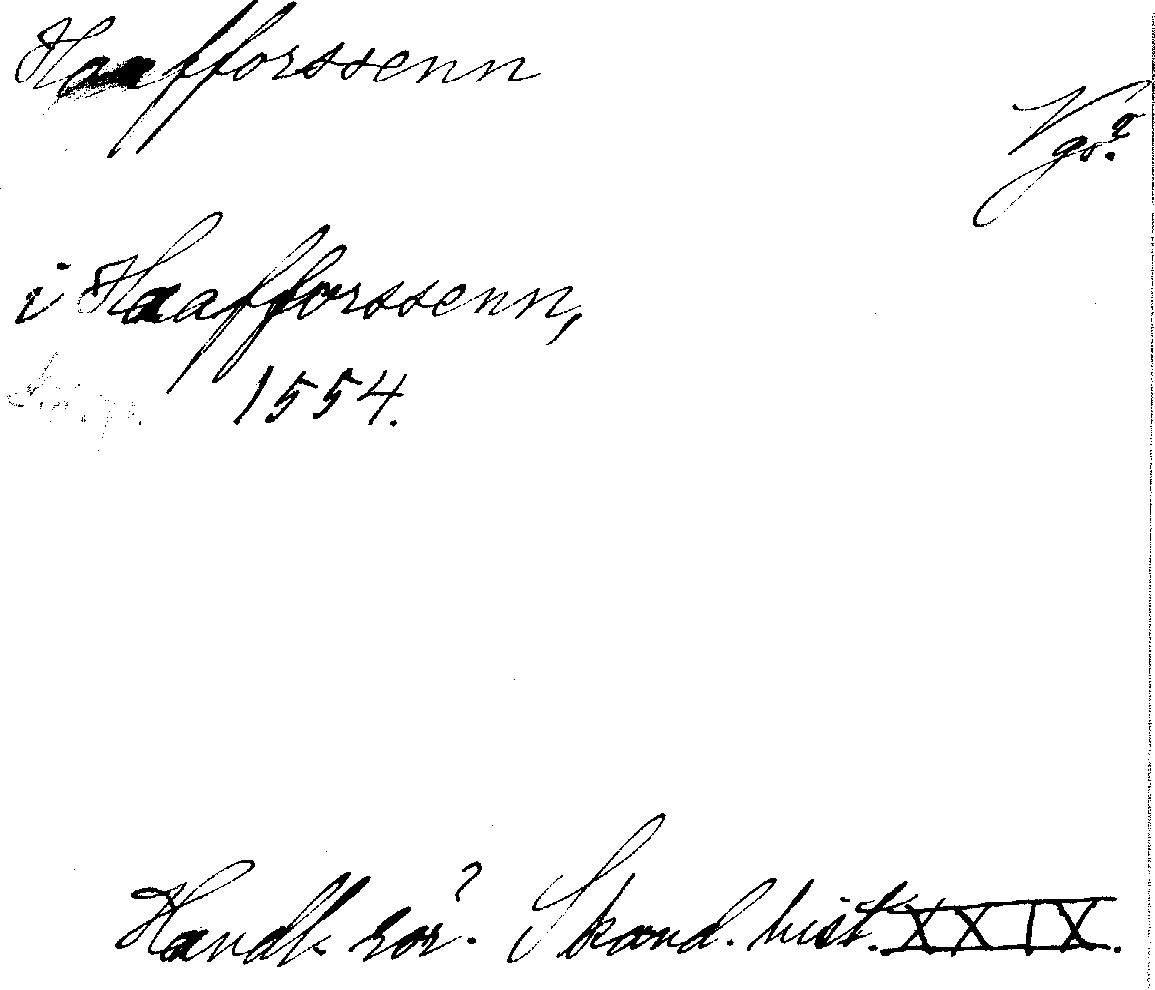 Haafforssenn
Vgö?
i Haafforssenn,
1554.
Handl. rör. Skand. hist. XXIX.